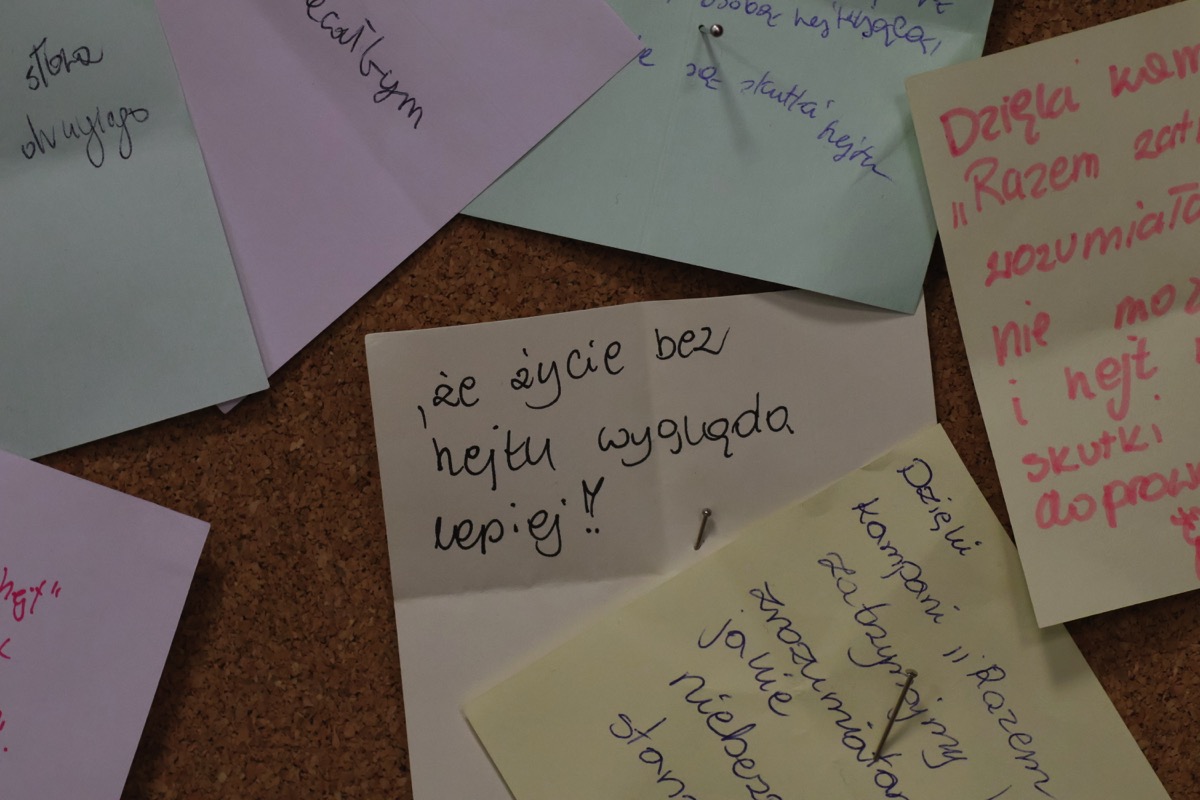 słowa
drugiego
ecałbym
osobą hejtującą
są skutki hejtu
Dzięki kam
"Razem zat
zrozumiała
nie moż
i hejt
skutki
doprow
że życie bez
hejtu wygląda
lepiej!!
Dzięki
kampani "Razem
zatrzymajmy
zrozumiałam
jakie
niebez
stan
hejt"